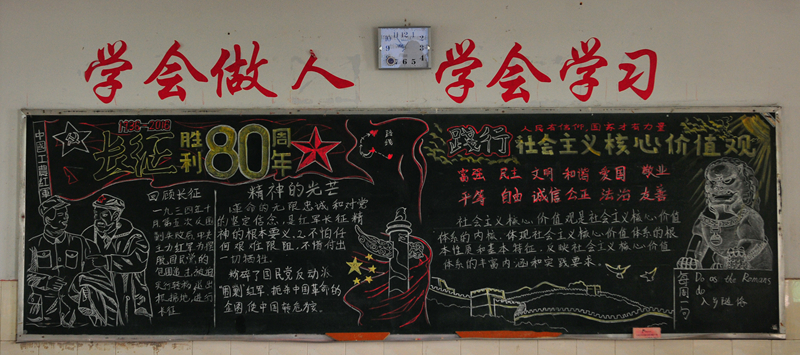 学会做人 学会学习
中国工农红军
1936-2016
长征胜利80周年
回顾长征
一九三四年十
精神的光芒
对革命的无限忠诚和对党
的坚定信念,是红军长征精
神的根本要义,不怕任
何艰难险阻,不惜付出
一切牺牲。
粉碎了国民党反动派
“围剿”红军,扼杀中国革命的
企图,使中国转危为安。
路线
践行
人民有信仰,国家才有力量
社会主义核心价值观
富强 民主 文明 和谐 爱国 敬业
平等 自由 诚信 公正 法治 友善
社会主义核心价值观是社会主义核心价值
体系的内核,体现社会主义核心价值体系的根
本性质和基本特征,反映社会主义核心价值
体系的丰富内涵和实践要求。
每周一句
Do as the Romans
do
入乡随俗